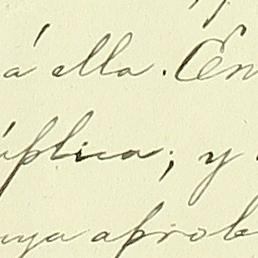 á ella. En
ública; y
uya aprob